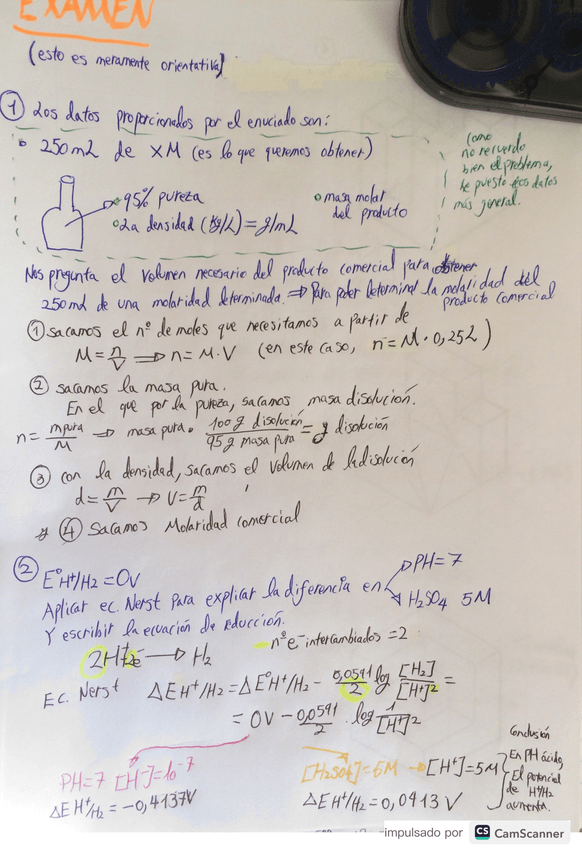 EXAMEN
(esto es meramente orientativa)
① Los datos proporcionados por el enuciado son:
250mL de XM (es lo que queremos obtener)
95% pureza
La densidad (kg/L) = g/mL
masa molar
del producto
como
no recuerdo
bien el problema,
he puesto los datos
más general.
Nos pregunta el volumen necesario del producto comercial para obtener
250ml de una molaridad determinada. ⇒ Para poder determinar la molaridad del
producto comercial
① sacamos el nº de moles que necesitamos a partir de
M = n/V → n = M·V (en este caso, n = M·0,25L)
② sacamos la masa pura.
En el que por la pureza, sacamos masa disolución.
n = mpura/M → masa pura · 100 g disolución/95 g masa pura = g disolución
③ con la densidad, sacamos el volumen de la disolución
d = m/V → V = m/d
④ Sacamos Molaridad comercial
② E°H+/H2 = 0V
Aplicar ec. Nerst para explicar la diferencia en
PH=7
H2SO4 5M
Y escribir la ecuación de reducción.
2H+2e- → H2
nº e- intercambiados = 2
Ec. Nerst ΔE H+/H2 = ΔE°H+/H2 - 0,0591/2 log [H2]/[H+]2 =
= 0V - 0,0591/2 · log 1/[H+]2
PH=7 [H+]=10-7
ΔE H+/H2 = -0,4137V
[H2SO4]=5M → [H+]=5M
ΔE H+/H2 = 0,0413 V
Conclusión
En PH ácido,
El potencial
de H+/H2
aumenta.
impulsado por CS CamScanner